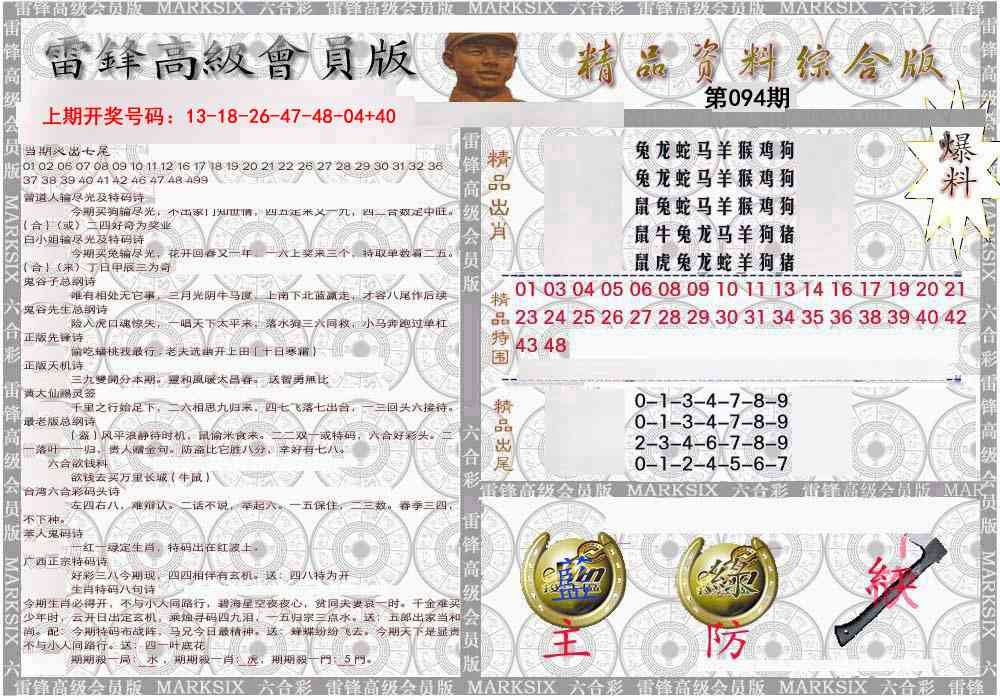 雷锋高级会员版 MARKSIX 六合彩 雷锋高级会员版 MARKSIX 六合彩 雷锋高级会员版 MARKSIX 六合彩 雷锋
雷鋒高級會員版
精品资料综合版
第094期
上期开奖号码：13-18-26-47-48-04+40
爆料
01 02 06 07 08 09 10 11 12 16 17 18 19 20 21 22 26 27 28 29 30 31 32 36
37 38 39 40 41 42 46 47 48 499
曾道人输尽光及特码诗
今期买狗输尽光，不出家门知世情，四五定来又一九，四二合数定中旺。
{合}(或) 二四好奇为奖业
白小姐输尽光及特码诗
今期买兔输尽光，花开回春又一年，一六上奖来三个，特取单数看二五。
{合}(来) 丁日甲辰三为奇
鬼谷子总纲诗
唯有相处无它事，三月光阴牛马度，上南下北蓝赢走，才容八尾作后续
鬼谷先生总纲诗
险入虎口魂惊失，一唱天下太平来，落水狗三六同救，小马奔跑过单杠
正版先锋诗
偷吃蟠桃我最行，老夫选幽开上田{十日寒霜}
正版天机诗
三九雙開分本期。靈和風暖太昌春。送智勇無比
黄大仙赐灵签
千里之行始足下，二六相思九归来，四七飞落七出台，一三回头六接待。
最老版总纲诗
{盗}风平浪静待时机，鼠偷米食来。二二双一或特码，六合好彩头。二
一落叶一一归。贵人赠金句。防盗比它胜八分，幸好有七八。
六合欲钱料
欲钱去买万里长城{牛鼠}
台湾六合彩码头诗
左四右八，难辩认。二话不说，举起六。一五保住，二三数。春季三四，
不下神。
苯人鬼码诗
一红一绿定生肖，特码出在红波上。
广西正宗特码诗
好彩三八今期现，四四相伴有玄机。送：四八特为开
生肖特码八句诗
今期生肖必得开，不与小人同路行，碧海星空夜夜心，贫同夫妻哀一时。千金难买
少年时，云开日出定玄机，乘烛寻码四九泪，一五归宗三点水。送：五郎出家当和
尚。配：今期特码布战阵，马兄今日最精神。送：蜂蝶纷纷飞去。今期天下是显贵
不与小人同路行。送：四一叶底花
期期殺一局：水，期期殺一肖：虎，期期殺一門：5門。
精品出肖
兔龙蛇马羊猴鸡狗
兔龙蛇马羊猴鸡狗
鼠兔蛇马羊猴鸡狗
鼠牛兔龙马羊狗猪
鼠虎兔龙蛇羊狗猪
精品特围
01 03 04 05 06 08 09 10 11 13 14 16 17 19 20 21
23 24 25 26 27 28 29 30 31 34 35 36 38 39 40 42
43 48
精品出尾
0-1-3-4-7-8-9
0-1-3-4-7-8-9
2-3-4-6-7-8-9
0-1-2-4-5-6-7
雷锋高级会员版 MARKSIX 六合彩 雷锋高级会员版 MAR
藍
主
綠
防
雷锋高级会员版 MARKSIX 六合彩 雷锋高级会员版 MARKSIX 六合彩 雷锋高级会员版 MARKSIX 六合彩 雷锋